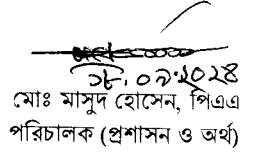 ১৮.০৯.২০২৪
মোঃ মাসুদ হোসেন, পিএএ
পরিচালক (প্রশাসন ও অর্থ)